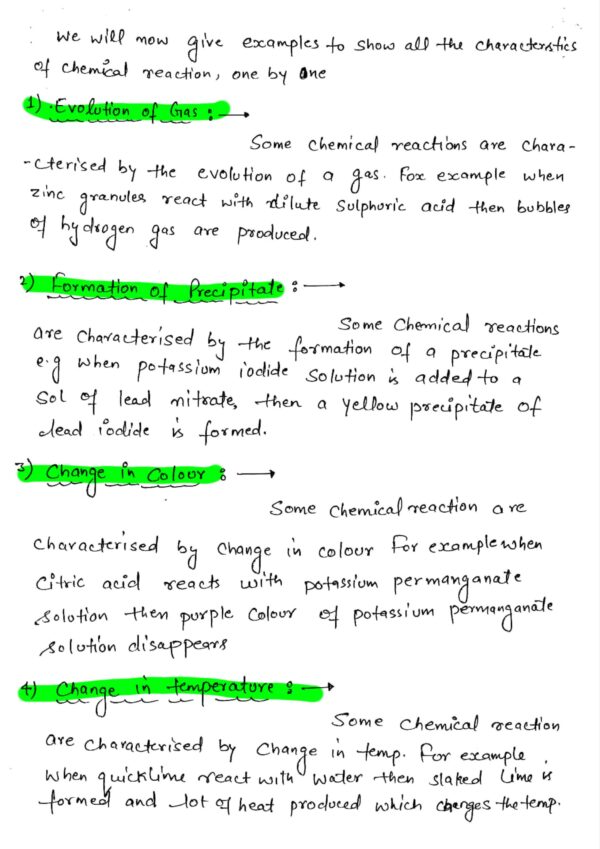 We will now give examples to show all the characterstics
of chemical reaction, one by one
1) Evolution of Gas : →
Some chemical reactions are chara-
-cterised by the evolution of a gas. For example when
zinc granules react with dilute sulphuric acid then bubbles
of hydrogen gas are produced.
2) Formation of Precipitate : →
Some Chemical reactions
are characterised by the formation of a precipitate
e.g when potassium iodide solution is added to a
sol of lead nitrate, then a yellow precipitate of
lead iodide is formed.
3) Change in Colour : →
Some chemical reaction are
characterised by change in colour For example when
citric acid reacts with potassium permanganate
solution then purple colour of potassium permanganate
solution disappears
4) Change in temperature : →
Some chemical reaction
are characterised by Change in temp. For example,
when quicklime react with water then slaked lime is
formed and lot of heat produced which changes the temp.